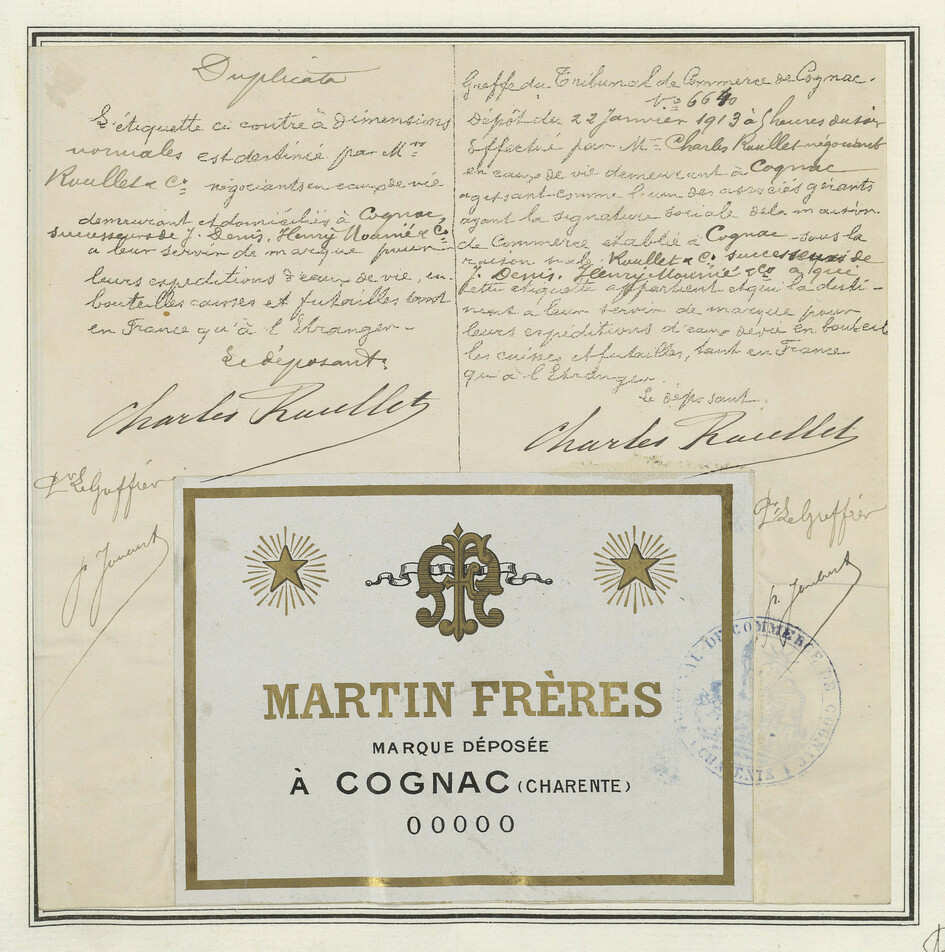 Duplicata
L'étiquette ci contre à dimensions
normales est destinée par Mrs
Roullet & Co négociants en eaux de vie
demeurant et domiciliés à Cognac,
successeurs de J. Denis, Henry Mounié & Co
a leur servir de marque pour
leurs expéditions d'eaux de vie, en
bouteilles caisses et futailles tant
en France qu'à l'Etranger.
Le déposant,
Charles Roullet
Pr Le Greffier
p. Joubert
Greffe du Tribunal de Commerce de Cognac.
No 6640
Dépôt du 22 Janvier 1913 à 5 heures du soir
Effectué par M. Charles Roullet négociant
en eaux de vie demeurant à Cognac
agissant comme l'un des associés gérants
ayant la signature sociale de la maison
de Commerce établie à Cognac sous la
raison sociale Roullet & Co successeurs de
J. Denis, Henry Mounié & Co à qui
cette étiquette appartient et qui la desti-
nent à leur servir de marque pour
leurs expéditions d'eaux de vie en bouteil
les caisses et futailles, tant en France
qu'à l'Etranger.
Le déposant,
Charles Roullet
Pr Le Greffier
p. Joubert
MARTIN FRÈRES
MARQUE DÉPOSÉE
À COGNAC (CHARENTE)
00000
TRIBUNAL DE COMMERCE DE COGNAC
(CHARENTE)